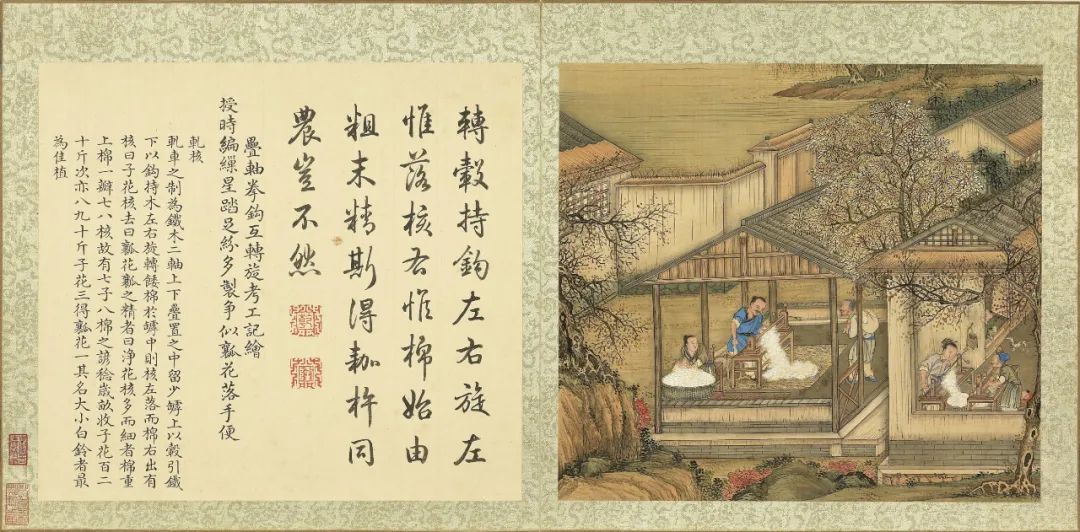 轉轂持鉤左右旋左
惟落核右惟棉始由
粗末精斯得耞杵同
農豈不然
疊軸拳鉤互轉旋考工記繪
授時編繅星踏足紛多製爭似瓤花落手便
軋核
軋車之制為鐵木二軸上下疊置之中留少罅上以轂引鐵
下以鉤持木左右旋轉餧棉於罅中則核左落而棉右出有
核曰子花核去曰瓤花瓤之精者曰浄花核多而細者棉重
上棉一瓣七八核故有七子八棉之諺稔歲畝收子花百二
十斤次亦八九十斤子花三得瓤花一其名大小白鈴者最
為佳植